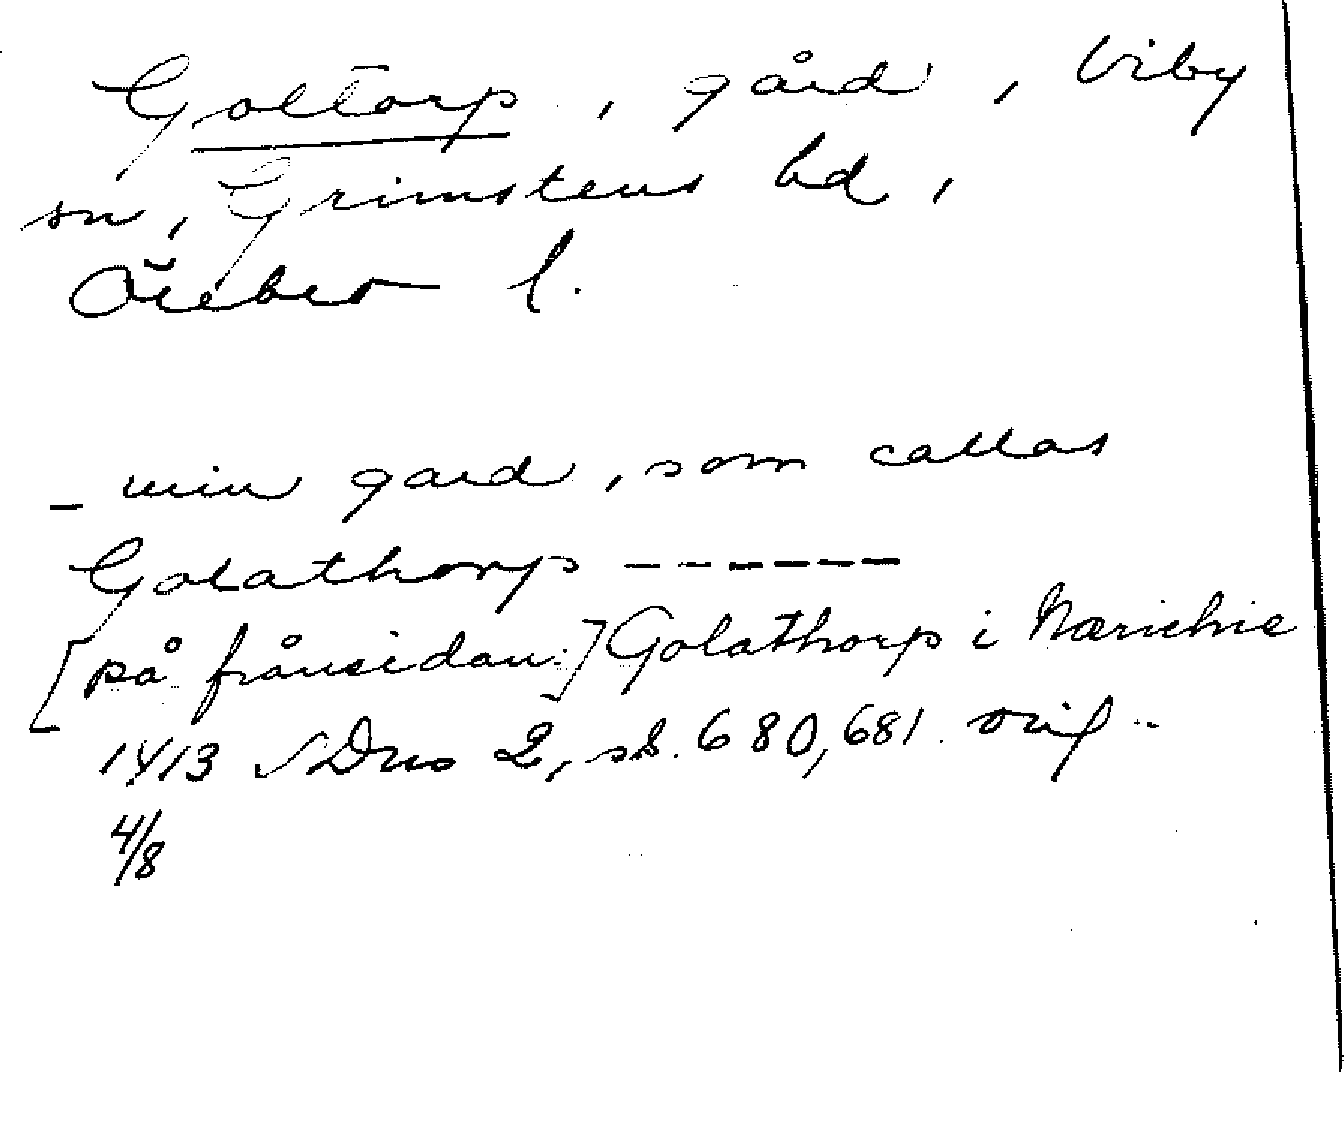 Goltorp, gård, Viby
sn, Grimstens hd,
Örebro l.
– min gard, som callas
Golathorp -------
[på frånsidan:] Golathorp i Nærichie
1413 4/8 SDns 2, sś. 680, 681. orig.